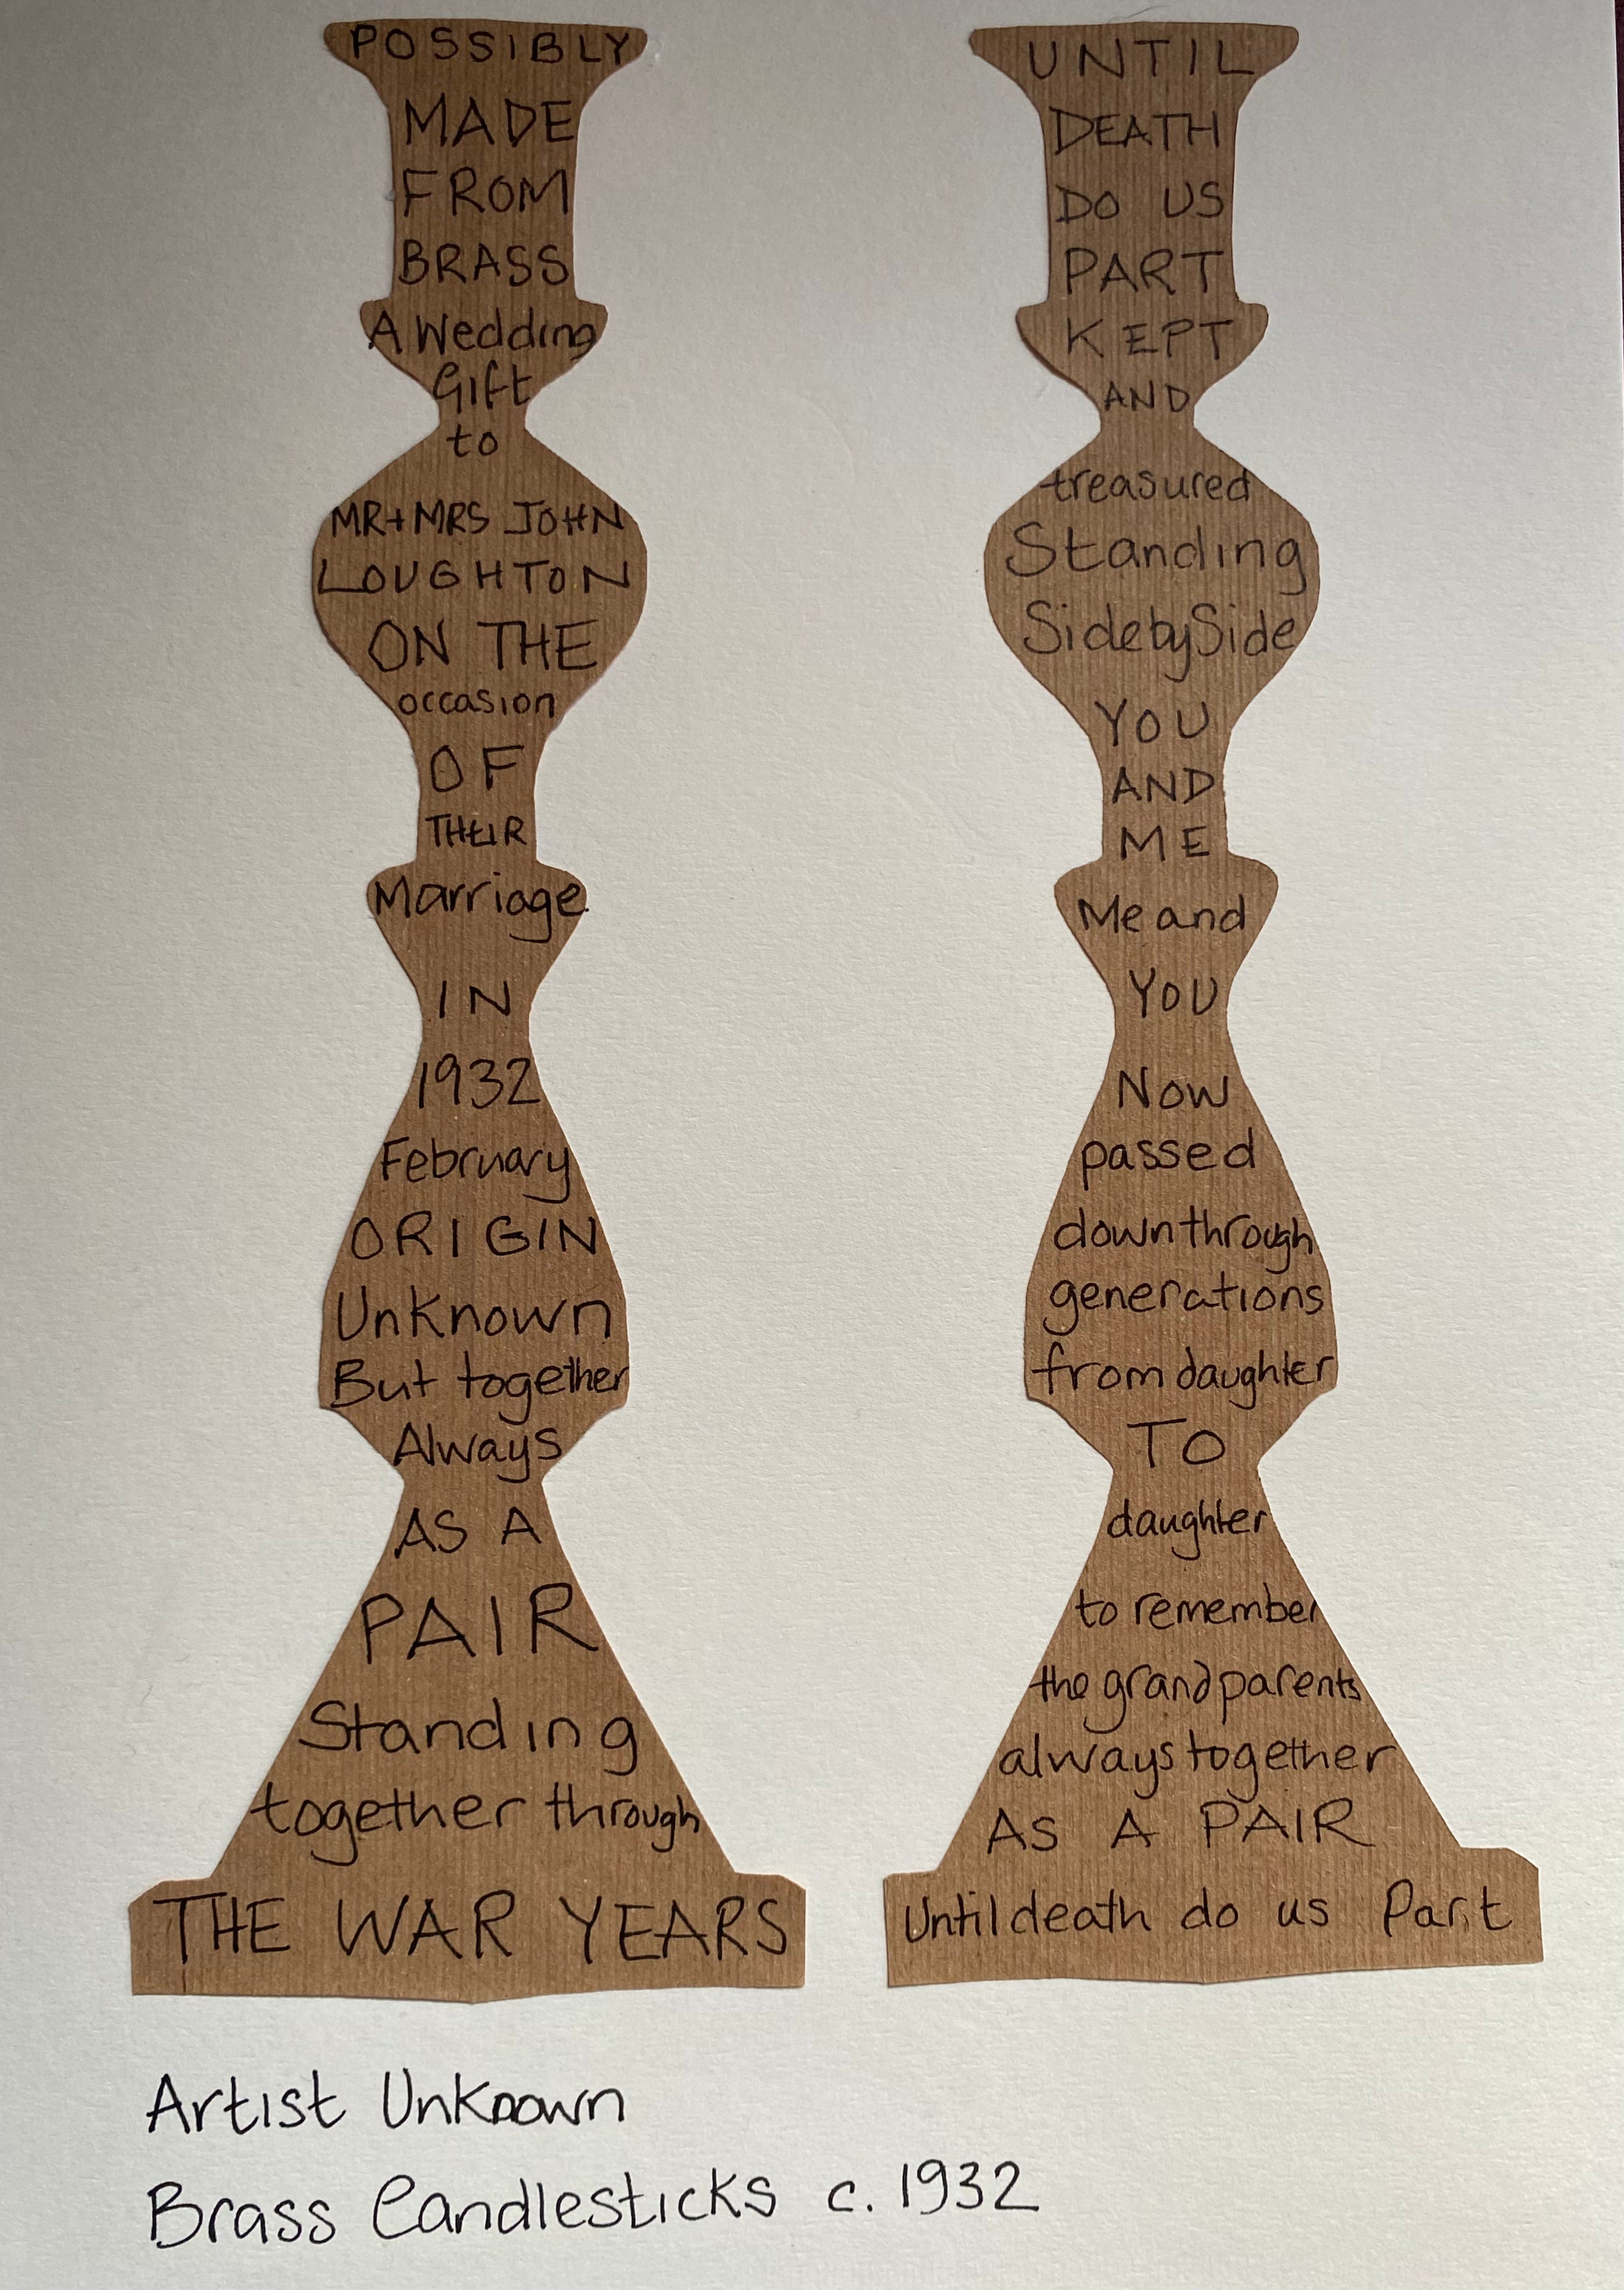 POSSIBLY
MADE
FROM
BRASS
A Wedding
Gift
to
MR+MRS JOHN
LOUGHTON
ON THE
occasion
OF
THEIR
Marriage
IN
1932
February
ORIGIN
Unknown
But together
Always
AS A
PAIR
Standing
together through
THE WAR YEARS
UNTIL
DEATH
DO US
PART
KEPT
AND
treasured
Standing
Side by Side
YOU
AND
ME
Me and
YOU
Now
passed
down through
generations
from daughter
TO
daughter
to remember
the grandparents
always together
AS A PAIR
Until death do us Part
Artist Unknown
Brass Candlesticks c. 1932